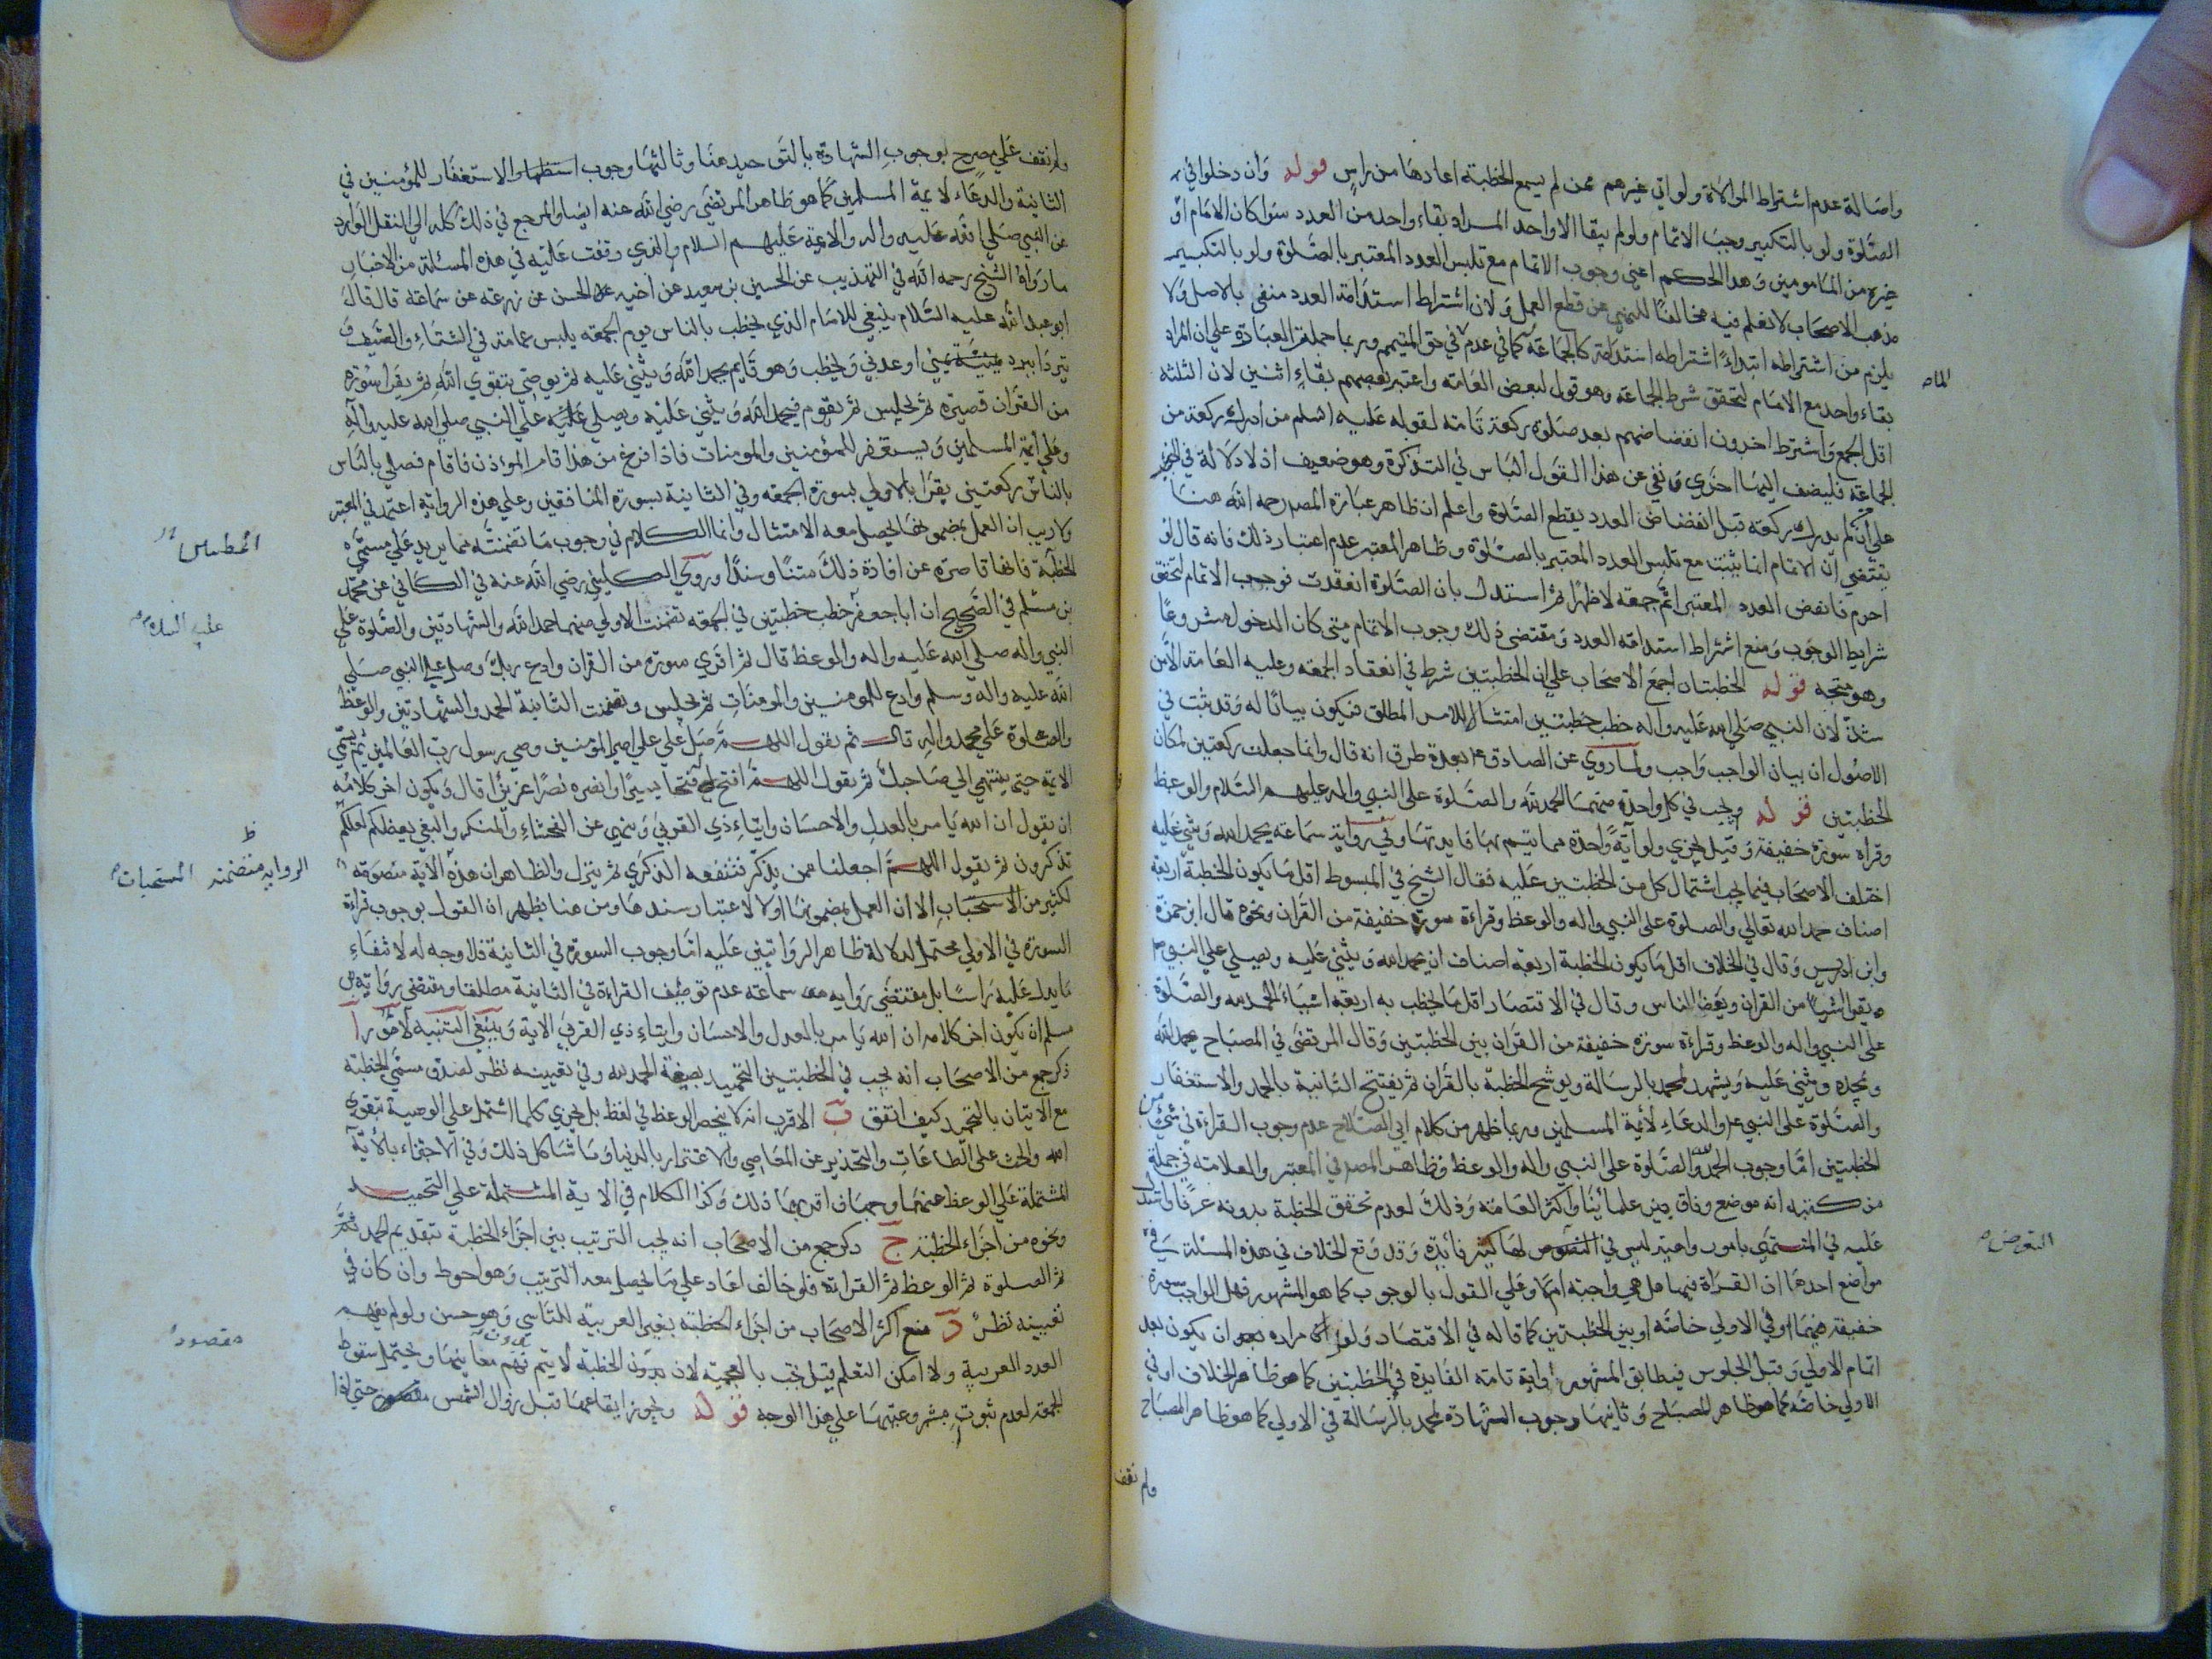 واصالة عدم اشتراط الموالاة ولو اتي غيرهم ممن لم يسمع الخطبة اعادها من راس قوله وان دخلوا في
الصلوة ولو بالتكبير وجب الاتمام ولو لم يبقا الا واحد المراد بقاء واحد من العدد سوا كان الامام او
غيره من المامومين وهذا الحكم اعني وجوب الاتمام مع تلبس العدد المعتبر بالصلوة ولو بالتكبير
مذهب الاصحاب لا نعلم فيه مخالفا للنهي عن قطع العمل ولان اشتراط استدامة العدد منفي بالاصل ولا
يلزم من اشتراطه ابتداء اشتراطه استدامة كالجماعة كما في عدم في حق المتيمم وربما حملة العبادة علي ان المراد
الماء
بقاء واحد مع الامام لتحقق شرط الجماعة وهو قول لبعض العامة واعتبر بعضهم بقاء اثنين لان الثلثة
اقل الجمع واشترط اخرون انفضاضهم بعد صلوة ركعة تامة لقوله عليه السلم من ادرك ركعة من
الجماعة فليضف اليها اخري ونفي عن هذا القول الباس في التذكرة وهو ضعيف اذ لا دلالة في الخبر
علي ان لم يدرك ركعة قبل انفضاض العدد يقطع الصلوة واعلم ان ظاهر عبارة المص رحمه الله هنا
يقتضي ان الاتمام انما يثبت مع تلبس العدد المعتبر بالصلوة وظاهر المعتبر عدم اعتبار ذلك فانه قال لو
احرم فانفض العدد المعتبر اتم جمعة لا ظهرا ثم استدل بان الصلوة انعقدت فوجب الاتمام لتحقق
شرايط الوجوب ومنع اشتراط استدامة العدد ومقتضي ذلك وجوب الاتمام متي كان الدخول مشروعا
وهو متجه قوله الخطبتان اجمع الاصحاب علي ان الخطبتين شرط في انعقاد الجمعة وعليه العامة الا من
شذ لان النبي صلي الله عليه واله خطب خطبتين امتثالا للامر المطلق فيكون بيانا له وقد ثبت في
الاصول ان بيان الواجب واجب ولما روي عن الصادق ع بعدة طرق انه قال وانما جعلت ركعتين لمكان
الخطبتين قوله ويجب في كل واحدة منهما الحمد لله والصلوة علي النبي واله عليهم السلام والوعظ
وقراة سورة خفيفة وقيل يجزي ولو آية واحدة مما يتم بها فايدتها وفي رواية سماعة يحمد الله ويثني عليه
اختلف الاصحاب فيما يجب اشتمال كل من الخطبتين عليه فقال الشيخ في المبسوط اقل ما يكون الخطبة اربعة
اصناف حمد الله تعالي والصلوة علي النبي واله والوعظ وقراءة سورة خفيفة من القران ونحوه قال ابن حمزة
وابن ادريس وقال في الخلاف اقل ما يكون الخطبة اربعة اصناف ان يحمد الله ويثني عليه ويصلي علي النبي
ويقرا شيا من القران ويعظ الناس وقال في الاقتصاد اقل ما يخطب به اربعة اشياء الحمد لله والصلوة
علي النبي واله والوعظ وقراءة سورة خفيفة من القران بين الخطبتين وقال المرتضي في المصباح يحمد الله
ويمجده ويثني عليه ويشهد لمحمد بالرسالة ويوشح الخطبة بالقران ثم يفتتح الثانية بالحمد والاستغفار
والصلوة علي النبي ع والدعاء لأئمة المسلمين وربما ظهر من كلام ابي الصلاح عدم وجوب القراءة في شئ من
الخطبتين اما وجوب الحمد لله والصلوة علي النبي واله والوعظ فظاهر المص في المعتبر والعلامة في جملة
من كتبه انه موضع وفاق بين علمائنا واكثر العامة وذلك لعدم تحقق الخطبة بدونه عرفا واستدل
عليه في المنتهي بامور واعتبر ليس في النصوص لها كثير فائدة وقد وقع الخلاف في هذه المسئلة في
التعرض
مواضع احدها ان القراة فيهما هل هي واجبة ام لا وعلي القول بالوجوب كما هو المشهور فهل الواجب سورة
خفيفة فيهما او في الاولي خاصة او بين الخطبتين كما قاله في الاقتصاد ولعل مراده ان يكون بعد
اتمام الاولي وقبل الجلوس فيطابق المشهور او اية تامة الفايدة في الخطبتين كما هو ظاهر الخلاف او في
الاولي خاصة كما هو ظاهر المصباح وثانيها وجوب الشهادة لمحمد بالرسالة في الاولي كما هو ظاهر المصباح
ولم نقف
ولم نقف علي مصرح بوجوب الشهادة بالتوحيد هنا وثالثها وجوب استظهار الاستغفار للمؤمنين في
الثانية والدعاء لائمة المسلمين كما هو ظاهر المرتضي رضي الله عنه ايضا والمرجع في ذلك كله الي النقل الوارد
عن النبي صلي الله عليه واله والائمة عليهم السلام والذي وقفت عليه في هذه المسئلة من الاخبار
ما رواه الشيخ رحمه الله في التهذيب عن الحسين بن سعيد عن اخيه الحسن عن زرعة عن سماعة قال قال
ابو عبد الله عليه السلام ينبغي للامام الذي يخطب بالناس يوم الجمعة يلبس عمامة في الشتاء والصيف و
يتردا ببرد يمني او عدني ويخطب وهو قايم يحمد الله ويثني عليه ثم يوصي بتقوي الله ثم يقرا سورة
من القران قصيرة ثم يجلس ثم يقوم فيحمد الله ويثني عليه ويصلي علي النبي صلي الله عليه واله
وعلي أئمة المسلمين ويستغفر للمؤمنين والمومنات فاذا فرغ من هذا قام الموءذن فاقام فصلي بالناس
بالناس ركعتين يقرا بالاولي بسورة الجمعة وفي الثانية بسورة المنافقين وعلي هذه الرواية اعتمد في المعتبر
ولا ريب ان العمل بمضمونها يحصل معه الامتثال وانما الكلام في وجوب ما تضمنته مما يزيد علي مسمي
الخطبة فانها قاصرة عن افادة ذلك متنا وسندا وروي الكليني رضي الله عنه في الكافي عن محمد
بن مسلم في الصحيح ان ابا جعفر خطب خطبتين في الجمعة تضمنت الاولي منهما حمد الله والشهادتين والصلوة علي
عليه السلام
النبي واله صلي الله عليه واله والوعظ قال ثم اقري سورة من القران وادع ربك وصل علي النبي صلي
الله عليه واله وسلم وادع للمومنين والمومنات ثم تجلس وتضمنت الثانية الحمد والشهادتين والوعظ
والصلوة علي محمد واله قال ثم يقول اللهم صل علي علي امير المؤمنين وصي رسول رب العالمين ثم تسمي
الائمة حتي ينتهي الي صاحبك ثم يقول اللهم افتح له فتحا يسيرا وانصره نصرا عزيزا قال ويكون اخر كلامه
ان يقول ان الله يامر بالعدل والاحسان وايتاء ذي القربي وينهي عن الفحشاء والمنكر والبغي يعظكم لعلكم
تذكرون ثم يقول اللهم اجعلنا ممن يذكر فتنفعه الذكري ثم ينزل والظاهر ان هذه الاية متصوفة
الرواية متضمنة المستحبات
ظ
لكثير من الاستحباب الا ان العمل بمضمونها اولا لاعتبار سندها ومن هنا يظهر ان القول بوجوب قراءة
السورة في الاولي محتمل لدلالة ظاهر الروايتين عليه اما وجوب السورة في الثانية فلا وجه له لانتفاء
ما يدل عليه راسا بل مقتضي رواية سماعة عدم توظيف القراءة في الثانية مطلقا ومقتضي رواية بن
مسلم ان يكون اخر كلامه ان الله يامر بالعدل والاحسان وايتاء ذي القربي الاية وينبغي التنبيه لامور ا
ذكر جمع من الاصحاب انه يجب في الخطبتين التحميد بصيغة الحمد لله وفي تعيينه نظر لصدق مسمي الخطبة
مع الاتيان بالتحميد كيف اتفق ب الاقرب انه لا ينحصر الوعظ في لفظ بل يجزي كلما اشتمل علي الوصية بتقوي
الله والحث علي الطاعات والتحذير عن المعاصي والاغترار بالدنيا وما شاكل ذلك وفي الاجتزاء بالاية
المشتملة علي الوعظ عنهما وجهان اقربهما ذلك وكذا الكلام في الاية المشتملة علي التحميد
ونحوه من اجزاء الخطبة ج ذكر جمع من الاصحاب انه يجب الترتيب بين اجزاء الخطبة بتقديم الحمد ثم
ثم الصلوة ثم الوعظ ثم القراءة فلو خالف اعاد علي ما يحصل معه الترتيب وهو احوط وان كان في
تعيينه نظر د منع اكثر الاصحاب من اجزاء الخطبة بغير العربية للتاسي وهو حسن ولو لم يفهم
العدد العربية ولا امكن التعلم قيل يجب بالعجمية لان بدون الخطبة لا يتم فهم معانيها ويحتمل سقوط
مقصودا
الجمعة لعدم ثبوت مشروعيتها علي هذا الوجه قوله ويجوز ايقاعهما قبل زوال الشمس حتي اذا